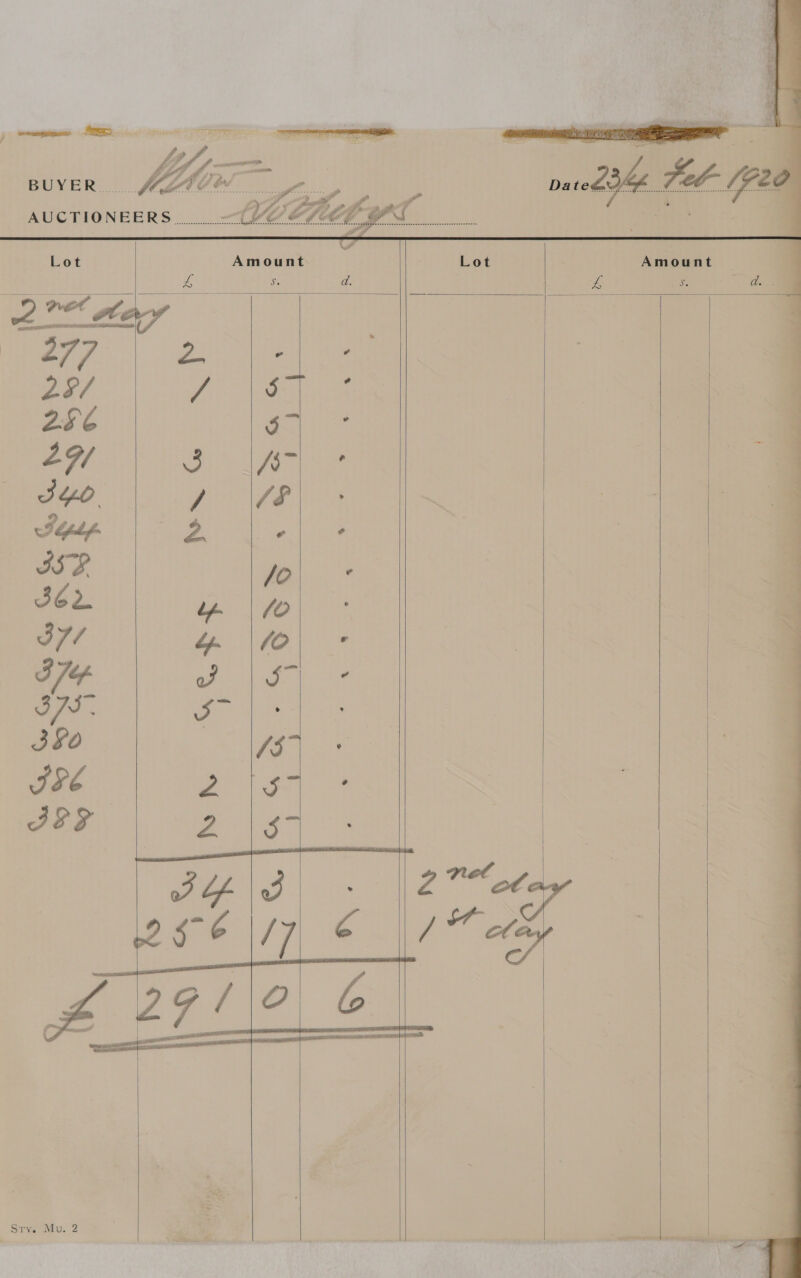 BUYER
Dated 23/4 Feb 1920
AUCTIONEERS Sothebys
Lot Amount Lot Amount
£ s. d. £ s. d.
2nd day
277 2 - -
281 1 5 -
286 5 -
291 3 15 -
340. 1 18 -
344 2 - -
358 10 -
362 4 10 -
371 4 10 -
374 3 5 -
375. 5 - -
380 15 -
386 2 5 -
388 2 5 -
34 3 - 2nd day
256 17 6 1st day
£ 291 0 6
Srv. Mu. 2